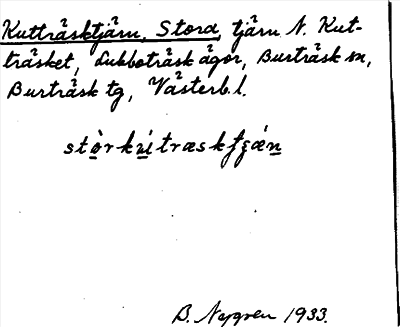 Kutträsktjärn, Stora, tjärn N. Kut-
träsket, Lubboträsk ägor, Burträsk sn,
Burträsk tg, Västerb. l.
stòrkùítræsktʃǽn
B. Nygren 1933.